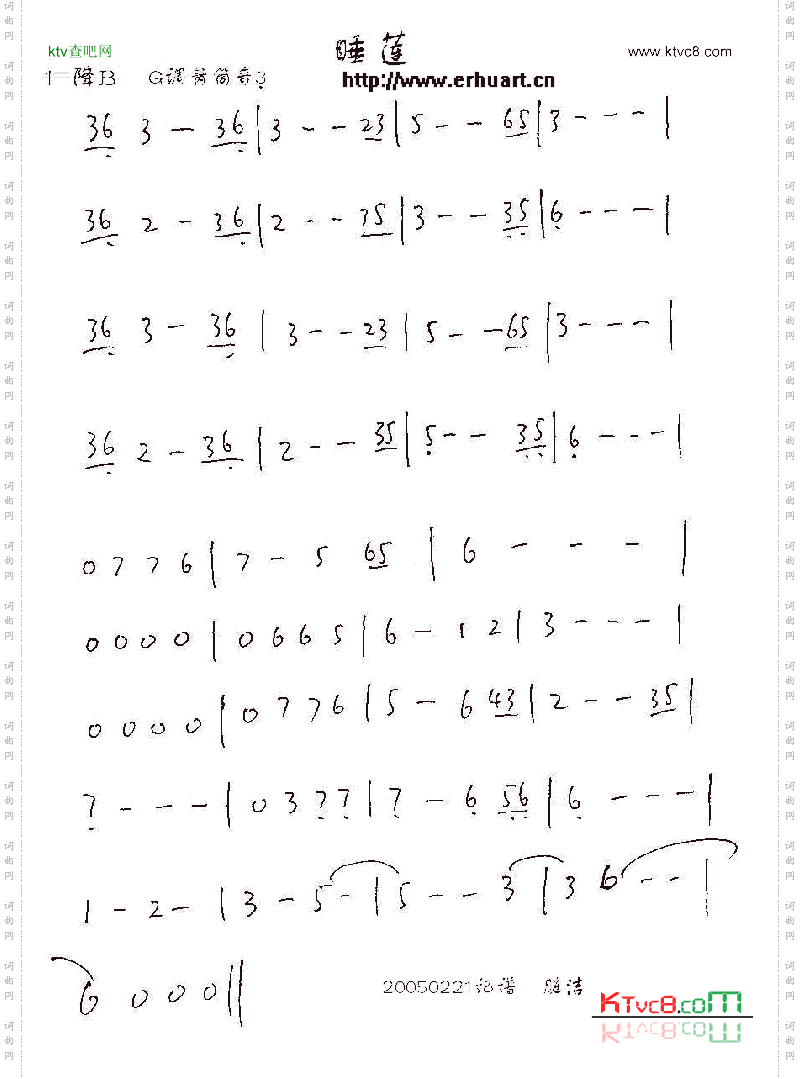 睡莲
ktv查吧网 www.ktvc8.com
1=降B G调箫筒音3 http://www.erhuart.cn
36 3 - 36 | 3 - - 23 | 5 - - 65 | 3 - - - |
36 2 - 36 | 2 - - 35 | 3 - - 35 | 6 - - - |
36 3 - 36 | 3 - - 23 | 5 - - 65 | 3 - - - |
36 2 - 36 | 2 - - 35 | 5 - - 35 | 6 - - - |
0 7 7 6 | 7 - 5 65 | 6 - - - |
0 0 0 0 | 0 6 6 5 | 6 - 1 2 | 3 - - - |
0 0 0 0 | 0 7 7 6 | 5 - 6 43 | 2 - - 35 |
7 - - - | 0 3 7 7 | 7 - 6 56 | 6 - - - |
1 - 2 - | 3 - 5 - | 5 - - 3 | 3 6 - - |
6 0 0 0 ||
20050221记谱
KTvc8.com
词曲网